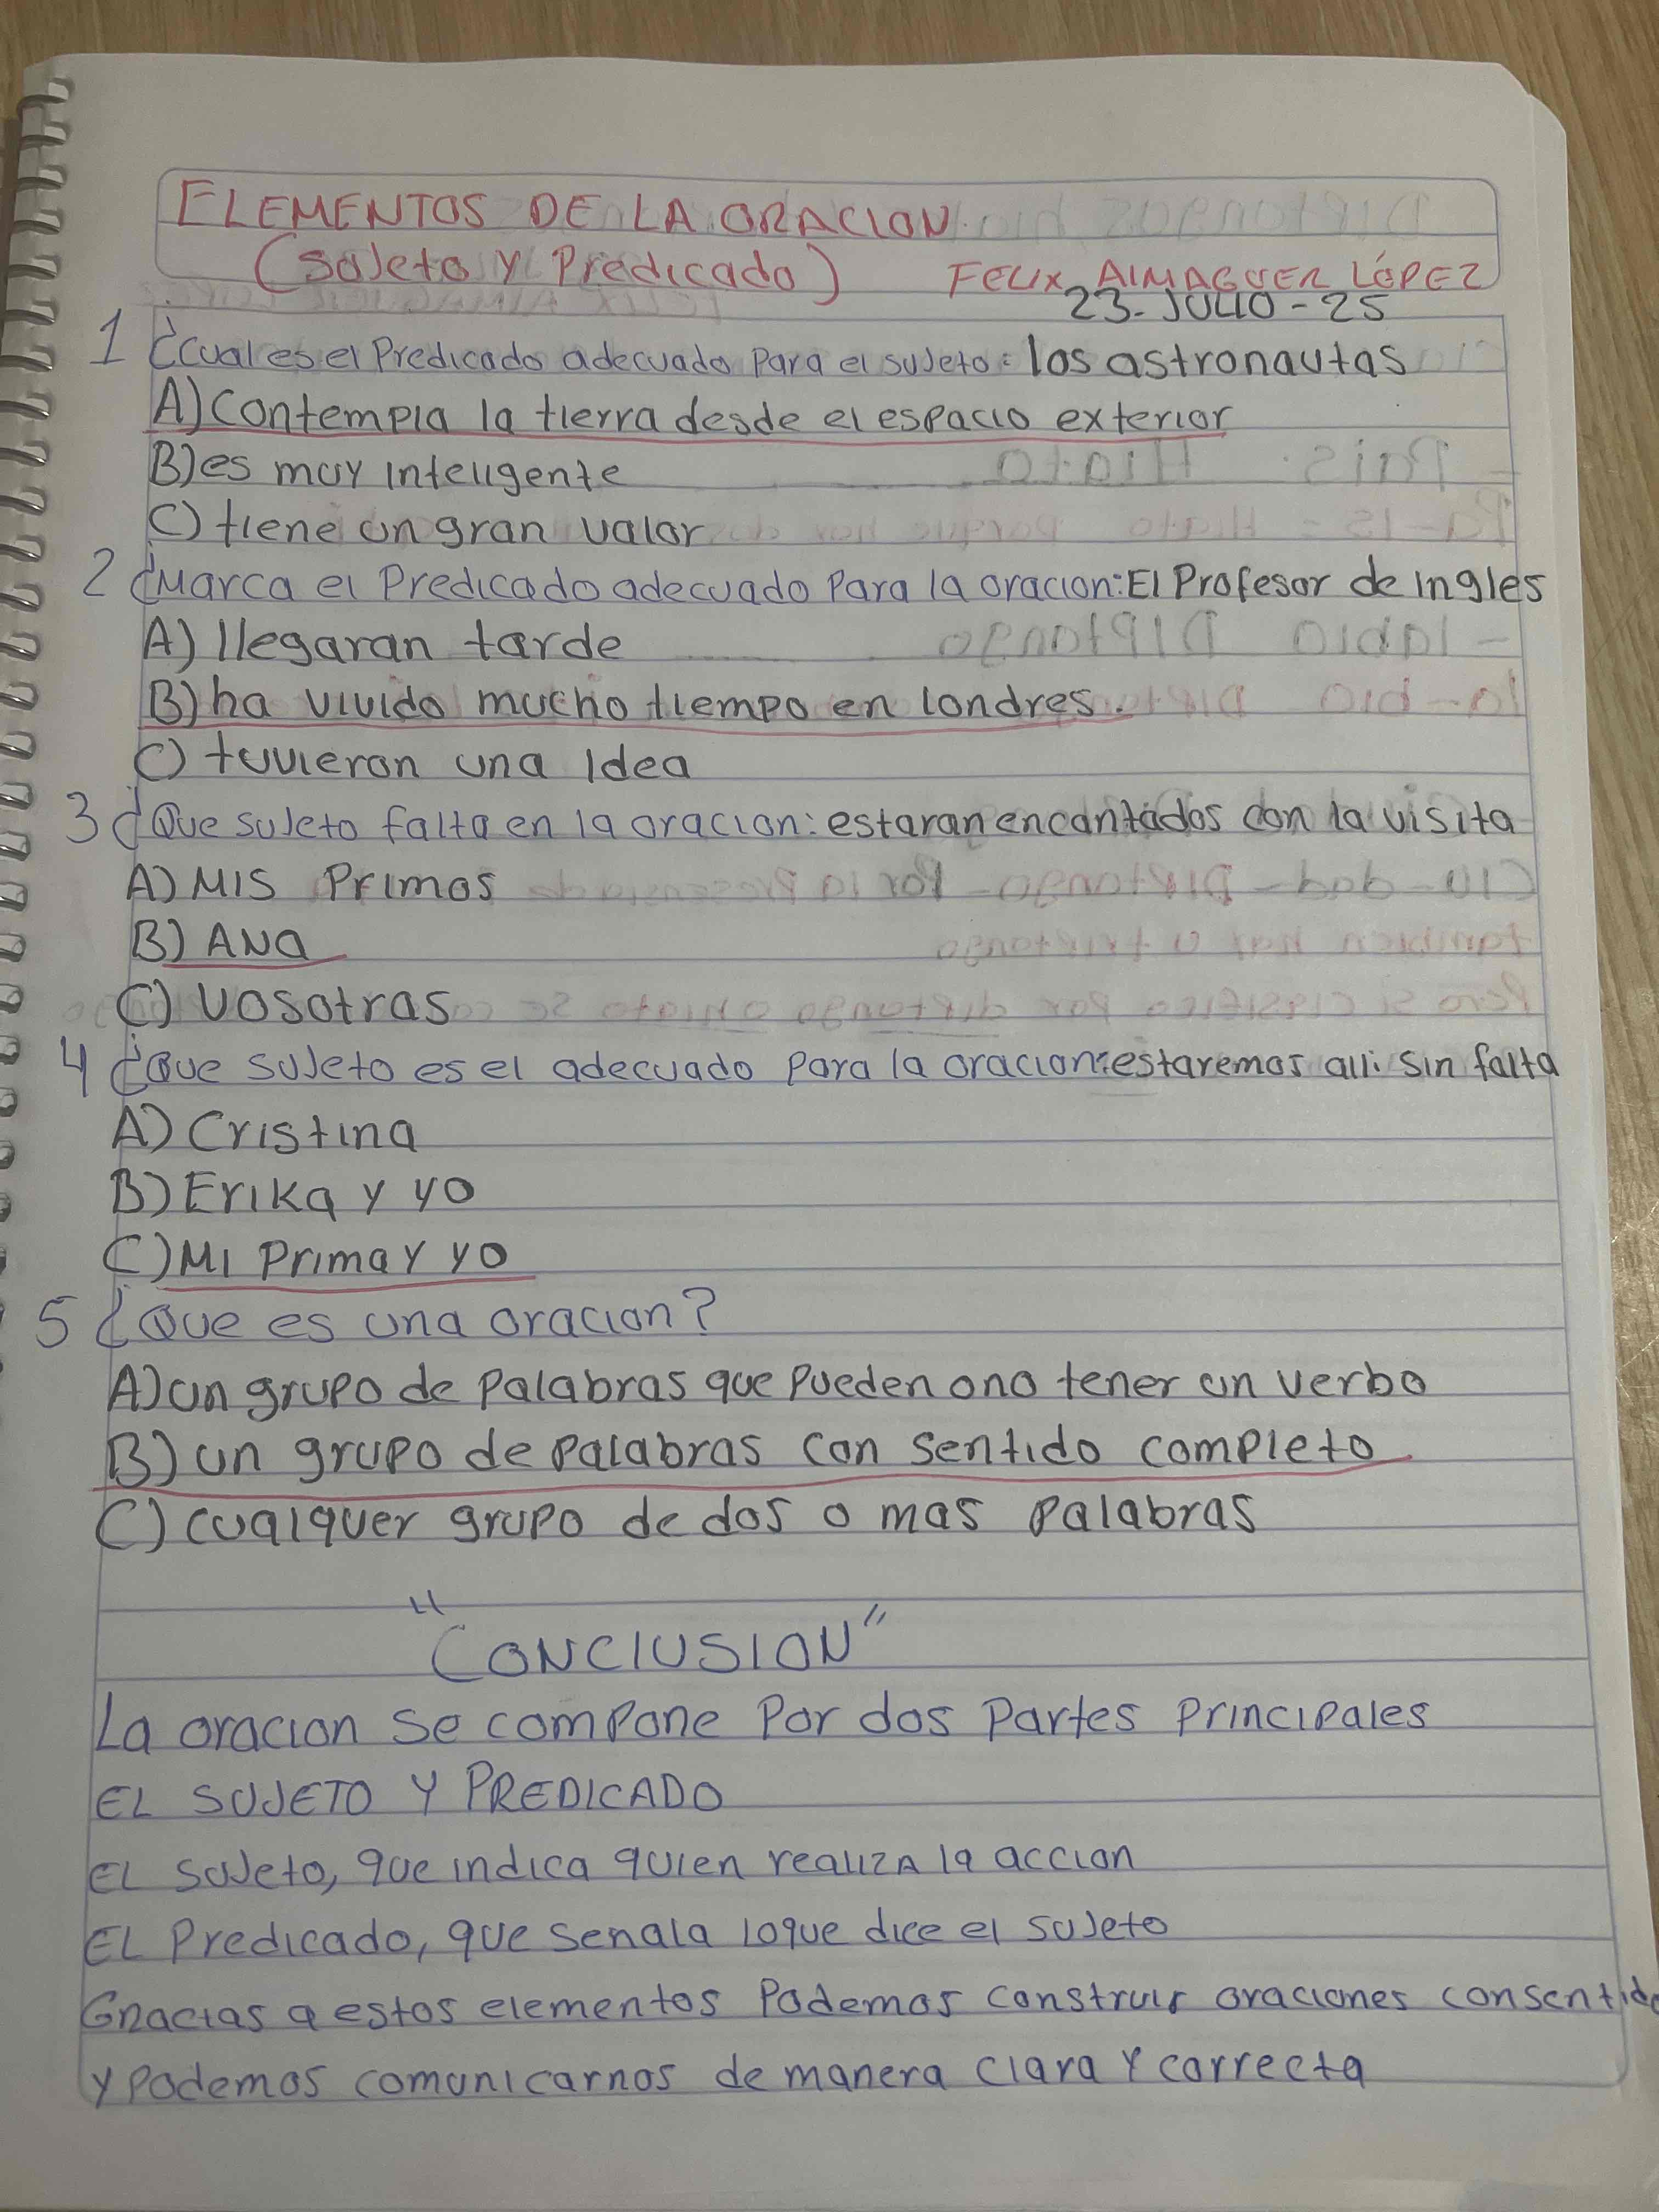 ELEMENTOS DE LA ORACION
(Sujeto y Predicado) FELIX AlMAGUER LÓPEZ
23-JULIO-25
1 ¿Cual es el Predicado adecuado Para el sujeto: los astronautas
A) Contempla la tierra desde el espacio exterior
B) es muy inteligente
C) tiene un gran valor
2 ¿Marca el Predicado adecuado Para la oracion: El Profesor de ingles
A) llegaran tarde
B) ha vivido mucho tiempo en londres.
C) tuvieron una idea
3 ¿Que sujeto falta en la oracion: estaran encantados con la visita
A) MIS Primos
B) ANA
C) vosotras
4 ¿Que sujeto es el adecuado para la oracion: estaremos alli sin falta
A) Cristina
B) Erika y yo
C) Mi Prima y yo
5 ¿Que es una oracion?
A) un grupo de Palabras que Pueden o no tener un verbo
B) un grupo de Palabras con sentido completo
C) cualquer grupo de dos o mas Palabras
"CONCLUSION"
La oracion se compone Por dos Partes Principales
EL SUJETO Y PREDICADO
EL sujeto, que indica quien realiza la accion
EL Predicado, que senala loque dice el sujeto
Gracias a estos elementos Podemos construir oraciones con sentido
y Podemos comunicarnos de manera clara y correcta